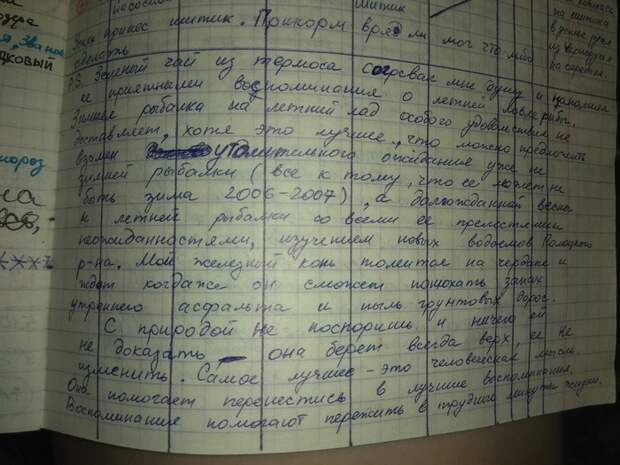 пасосной
Шитик
Опять принес шитик. Прикорм вряд ли мог что-либо
сделать
P.S. Зеленый чай из термоса согревал мне душу и наполнял
ее приятными воспоминание о летней ловле рыбы.
Зимнее рыбалка на летний лад особого удовольствия не
доставляет, хотя это лучшее, что можно предложить
взамен утомительного ожидание уже не
зимней рыбалки (все к тому, что ее может не
быть зима 2006-2007), а долгожданной весны
и летней рыбалки со всеми ее прелестями
неожиданностями, изучением новых водоемов
р-на. Мой железный конь толится на чердаке и
ждет когда же он сможет понюхать запах
утреннего асфальта и пыль грунтовых дорог.
С природой не поспоришь и ничего ей
не доказать она берет всегда верх, ее не
изменить. Самое лучшее - это человеческая мысль.
Она помогает перенестись в лучшие воспоминания.
Воспоминания помогают пережить в трудные минуты жизни.